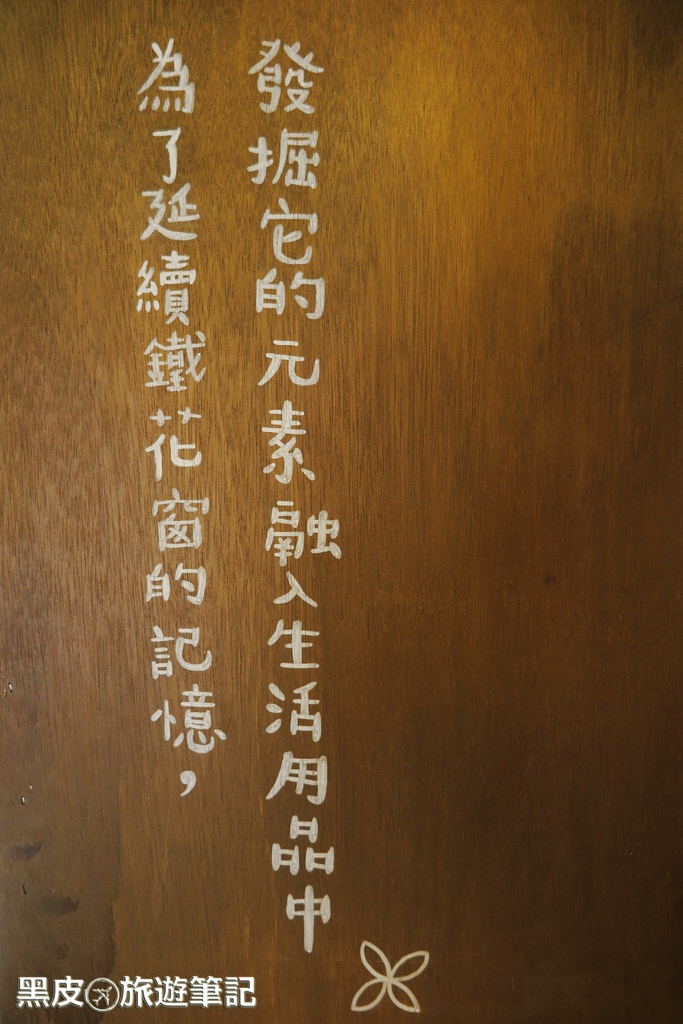 為了延續鐵花窗的記憶，
發掘它的元素融入生活用品中
黑皮旅遊筆記